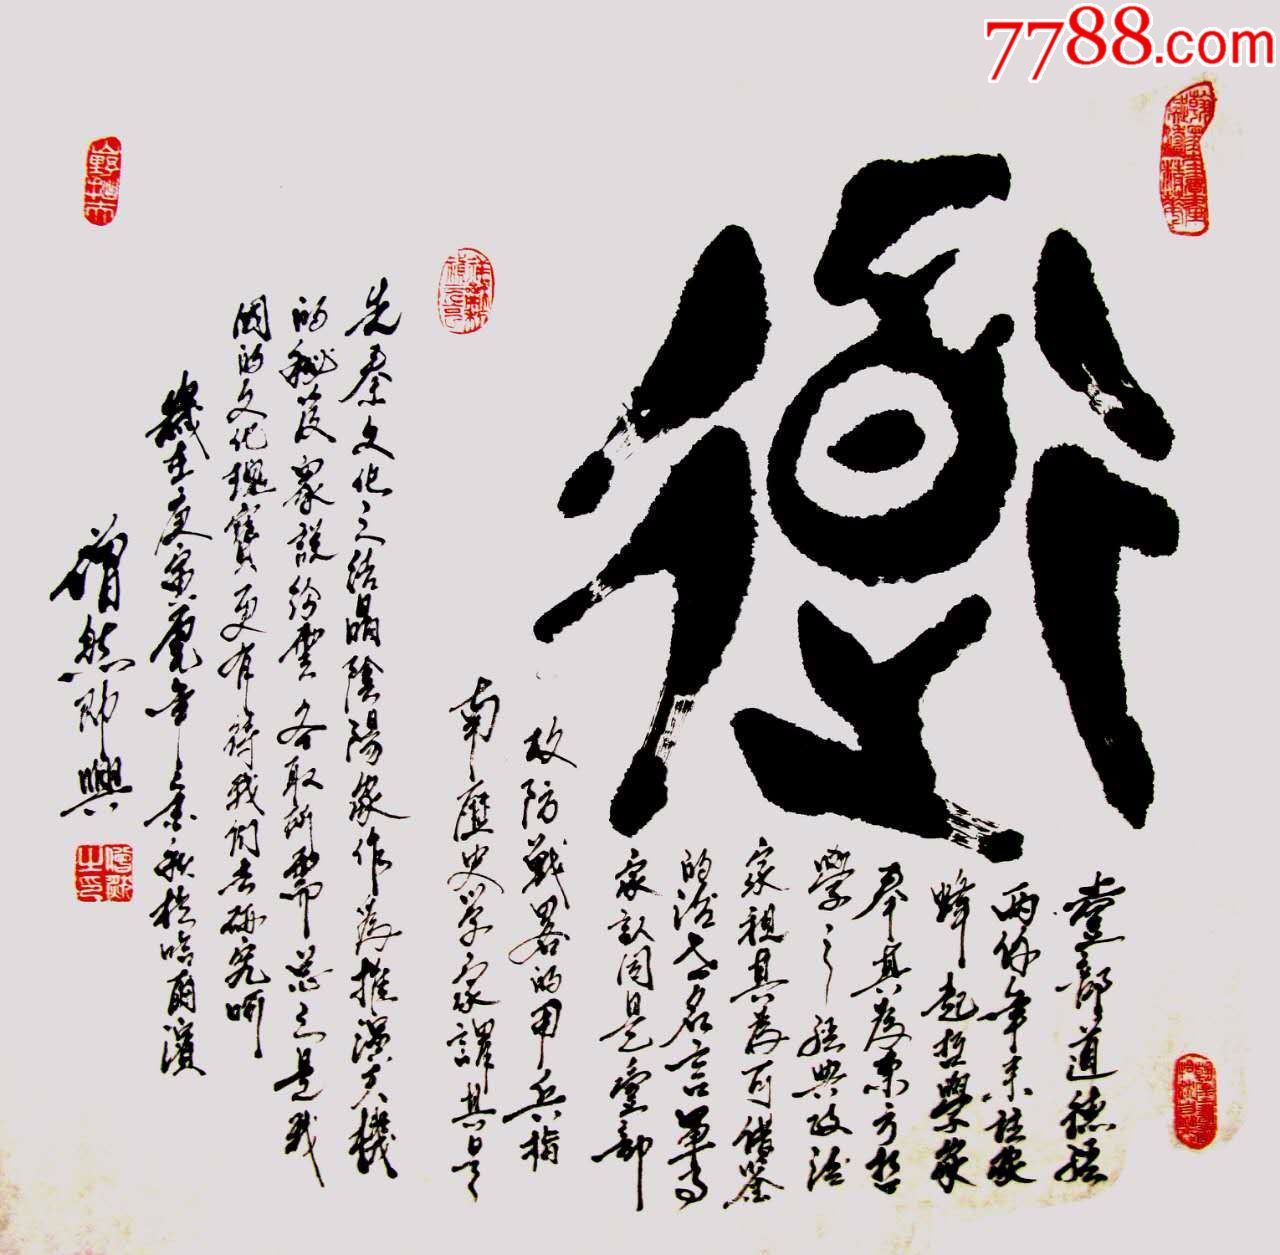 7788.com
道
壹部道德經
兩仟年来註家
蜂起哲學家
奉其為東方哲
學之經典政治
家視其為可借鉴
的治世名言軍事
家認同是壹部
攻防戰畧的用兵指
南歷史学家謂其是
先秦文化之結晶陰陽家作為推演天機
的秘笈衆說紛雲各取所需而总之是我
國的文化瑰寶更有待我們去研究呵
歲在庚寅虎年之秋於哈爾濱
然即興